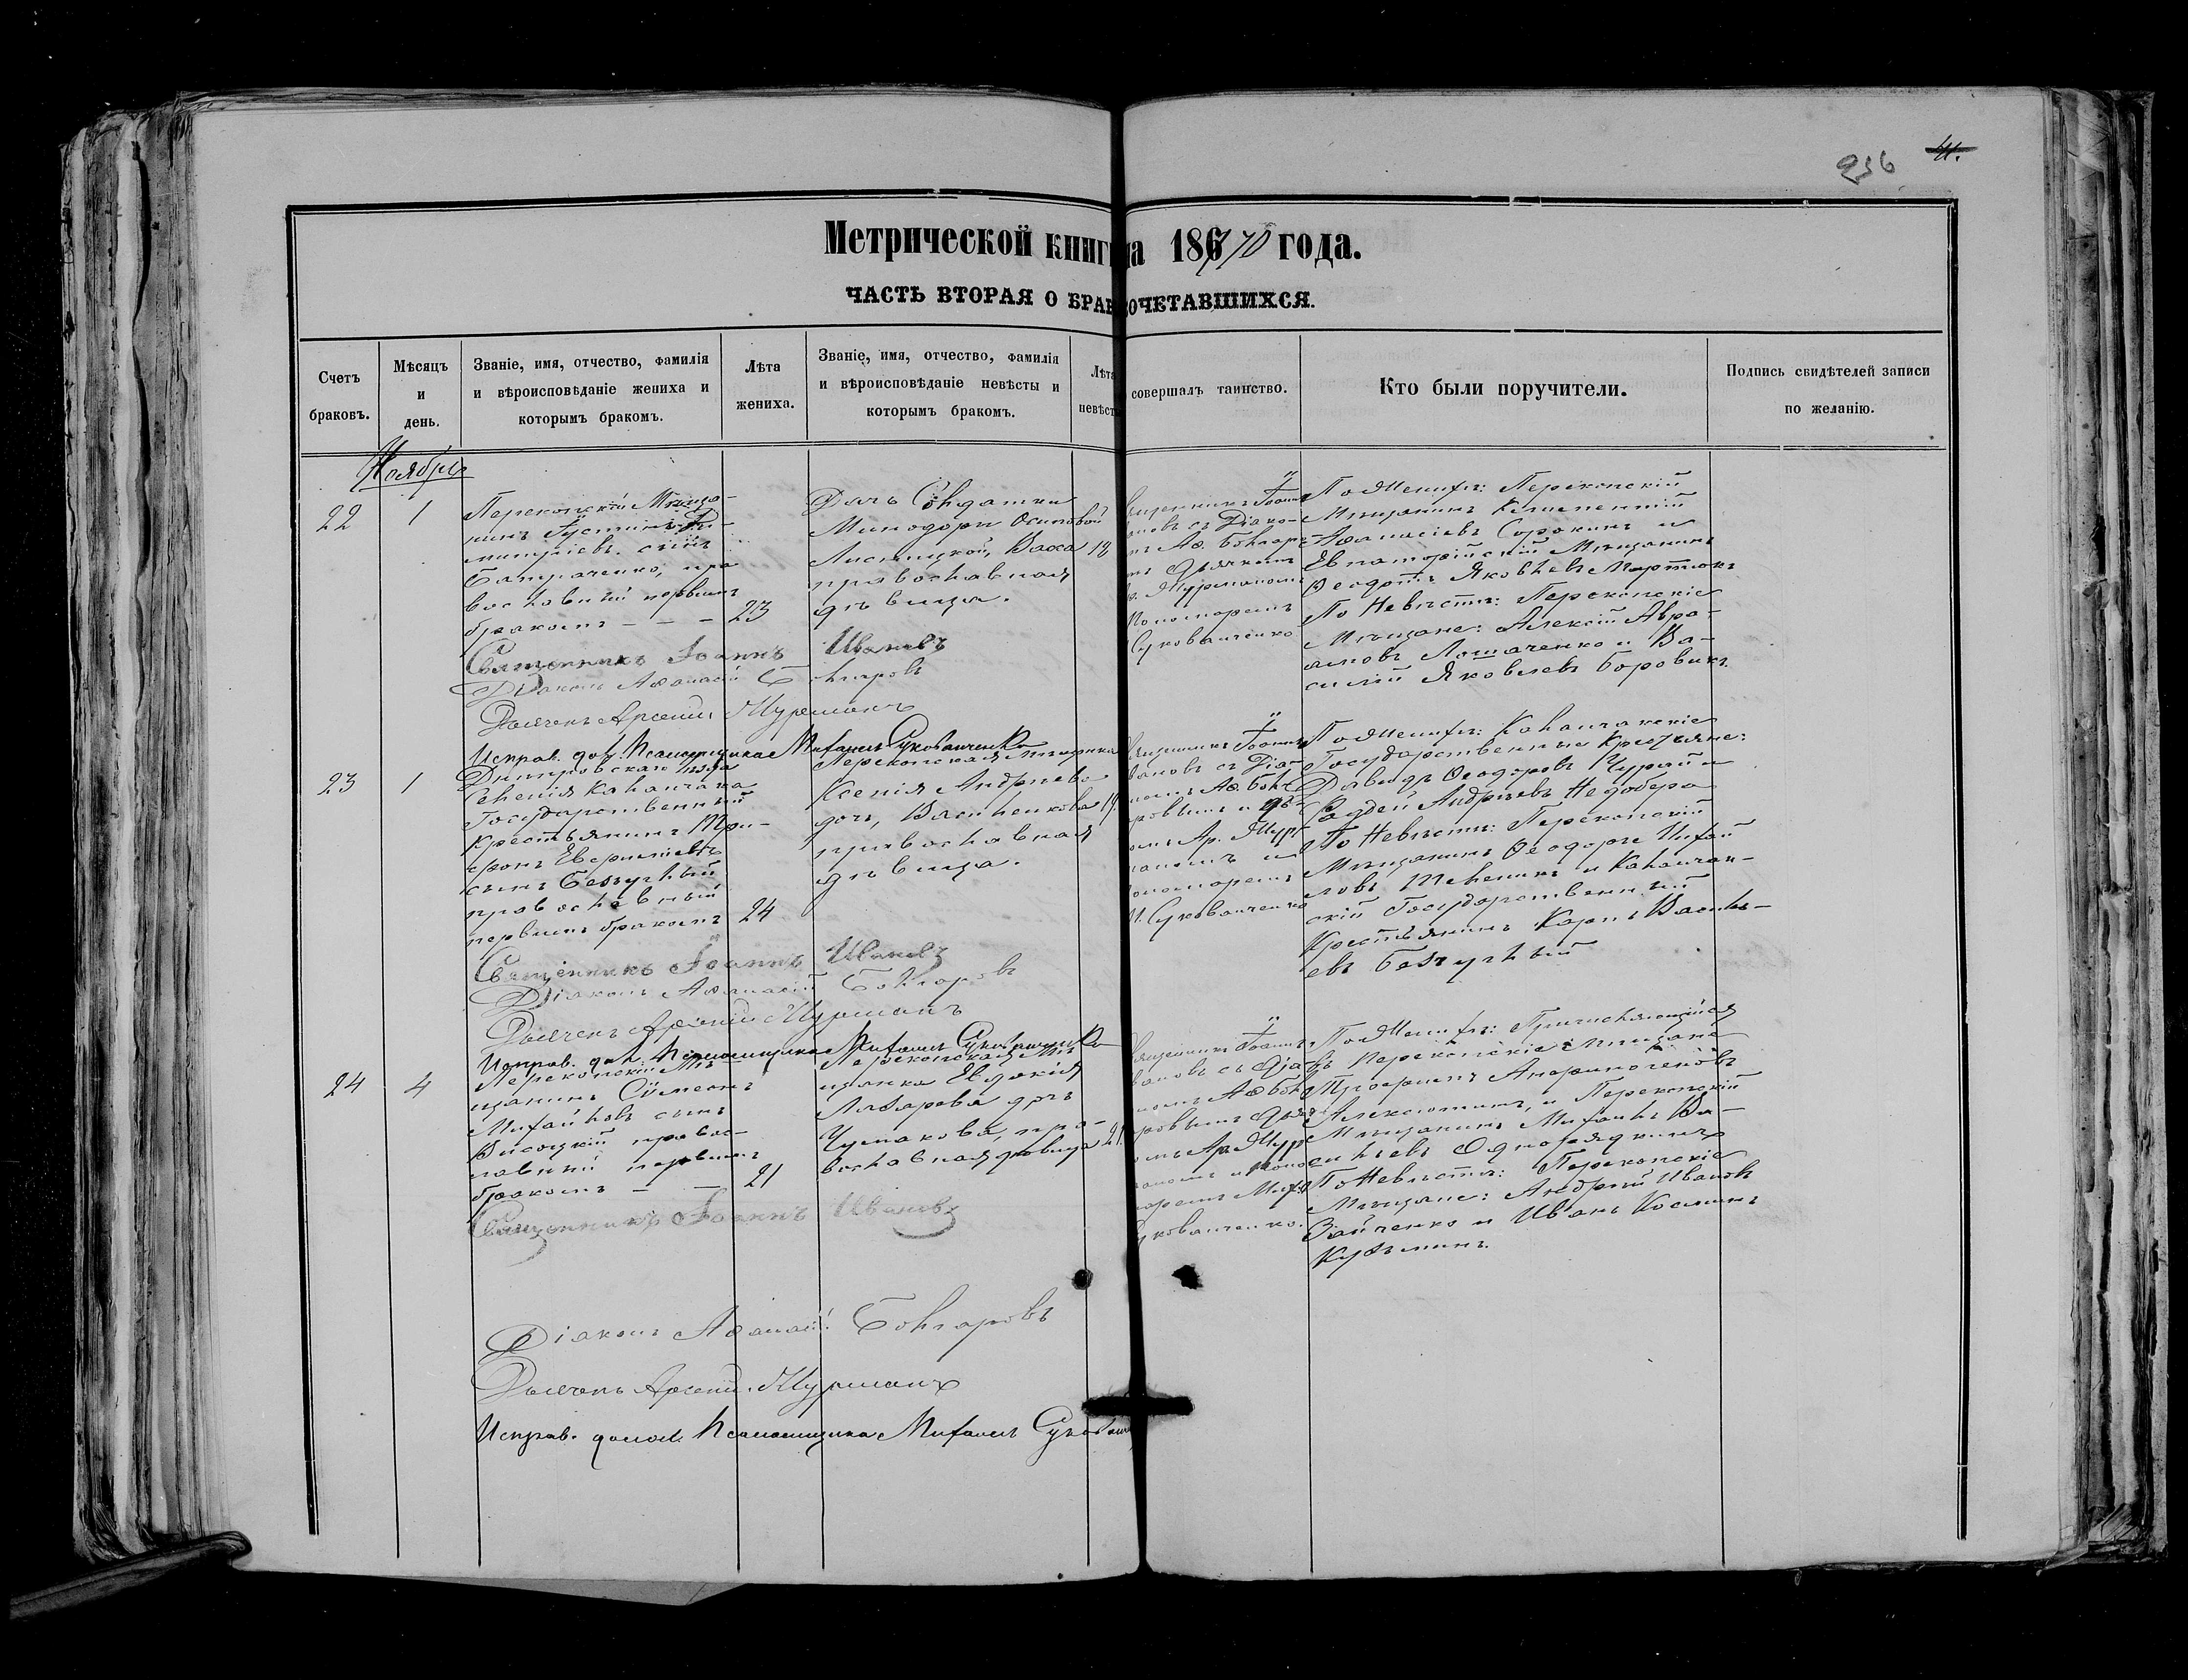 236 41.
Метрической книг на 1870 года.
ЧАСТЬ ВТОРАЯ О БРАКОСОЧЕТАВШИХСЯ.
Счетъ
браковъ.
Мѣсяцъ
и
день.
Званіе, имя, отчество, фамилія
и вѣроисповѣданіе жениха и
которымъ бракомъ.
Лѣта
жениха.
Званіе, имя, отчество, фамилія
и вѣроисповѣданіе невѣсты и
которымъ бракомъ.
Лѣта
невѣст
совершалъ таинство.
Кто были поручители.
Подпись свидѣтелей записи
по желанію.
Ноябрь
22
1
Перекопскій Мѣща-
нинъ Іустинъ Ди-
митріевъ сынъ
Батраченко, пра
вославный первымъ
бракомъ - - - 23
Дочь Солдатки
Минодоры Осиповой
Лисицкой, Васса 18
православная
дѣвица.
Іоаннъ
съ Діако-
Аѳ. Болгар
Дьячкомъ
Мурманомъ
Пономаремъ
Суковаченко
По Женихѣ: Перекопскій
Мѣщанинъ
Аѳанасіевъ Сорокинъ и
Евпаторійскій Мѣщанинъ
Ѳеодотъ Яковлевъ Мартюкъ
По Невѣстѣ: Перекопскіе
Мѣщане: Алексій Авра-
амовъ Лошаченко и Ва-
силій Яковлевъ Боровикъ
Священникъ Іоаннъ Ивановъ
Діаконъ Аѳанасій Болгаровъ
Дьячекъ Арсеній Мурманъ
Исправ. дол. Псаломщика Михаилъ Суковаченко
23
1
Днѣпровскаго уѣзда
Селенія Каланчака
Государственный
Крестьянинъ Три-
фонъ
сынъ Беззубый
православный
первымъ бракомъ 24
Перекопская мѣщанка
Ксенія Андреева
дочь, Василенкова 19
православная
дѣвица.
Іоаннъ
съ Діа-
Аѳ. Бол
Ар. Мур
Пономаремъ
М. Суковаченко
По Женихѣ: Каланчакскіе
Государственные Крестьяне:
Давидъ Ѳеодоровъ Чурай и
Ѳаддей Андреевъ Недобера
По Невѣстѣ: Перекопскій
Мѣщанинъ Ѳеодоръ Михай
ловъ и Каланчак-
скій Государственный
Крестьянинъ Карпъ Василь-
евъ Беззубый
Священникъ Іоаннъ Ивановъ
Діаконъ Аѳанасій Болгаровъ
Дьячекъ Арсеній Мурманъ
Исправ. дол. Псаломщика Михаилъ Суковаченко
24
4
Перекопскій Мѣ
щанинъ Симеонъ
Михайловъ сынъ
Висоцкій правос-
лавный первымъ
бракомъ - - 21
Перекопская Мѣ
щанка Евдокія
Лазарева дочь
Чумакова, пра-
вославная дѣвица 21
Іоаннъ
съ Діа
Аѳ Бол
Ар. Мур
Мих
Суковаченко.
По Женихѣ: Причисляющійся
въ Перекопскіе мѣщане
Трофимъ
Алексютинъ, и Перекопскій
Мѣщанинъ Михаилъ Ва-
сильевъ Однорядкинъ
По Невѣстѣ: Перекопскіе
Мѣщане: Андрей Ивановъ
Зайченко и Иванъ Косминъ
Кузьминъ.
Священникъ Іоаннъ Ивановъ
Діаконъ Аѳанасій Болгаровъ
Дьячекъ Арсеній Мурманъ
Исправ. долж. Псаломщика Михаилъ Суковач